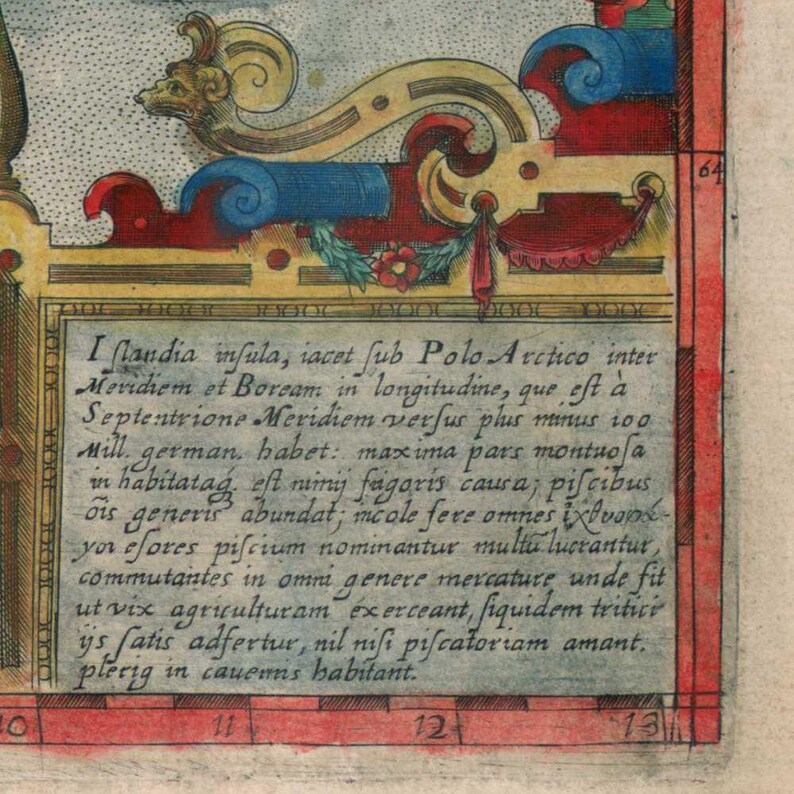 64
Islandia insula, iacet sub Polo Arctico inter
Meridiem et Boream in longitudine, que est à
Septentrione Meridiem versus plus minus 100
Mill. german. habet: maxima pars montuosa
inhabitataq₃ est nimij frigoris causa; piscibus
oīs generis abundat; incole fere omnes ἰχθυοφά-
γοι esores piscium nominantur multū lucrantur,
commutantes in omni genere mercature unde fit
ut vix agriculturam exerceant, siquidem tritici
ijs satis adfertur, nil nisi piscatoriam amant.
pleriq in cavernis habitant.
10 11 12 13